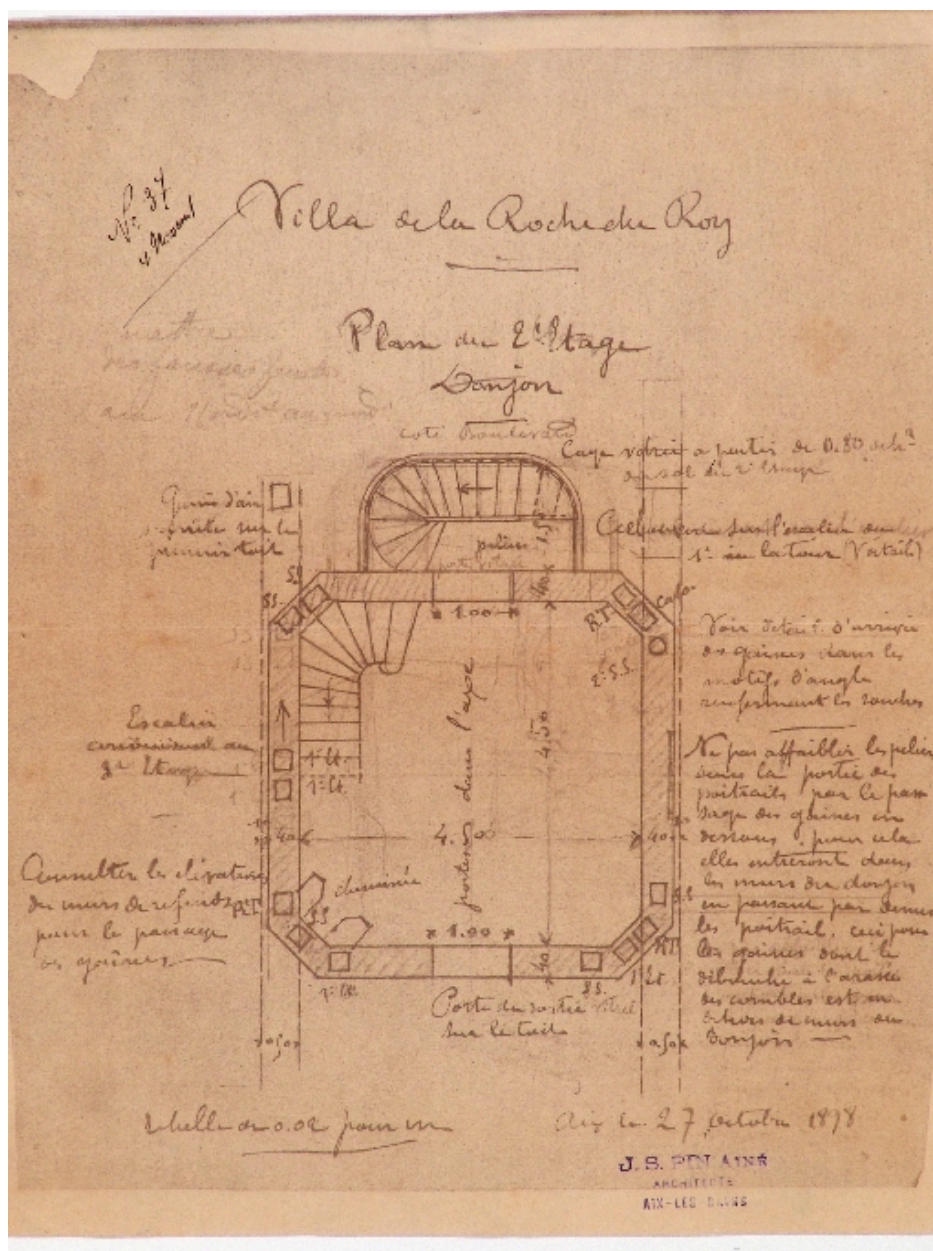 No 37
Villa de la Roche du Roy
Plan du 2e Etage
Donjon
mettre
coté Boulevard
Cage vitrée a partir de 0.80 de h.r
du sol du 2e Etage
Gaine d'air
sur le
premier toit
1.50
palier
1er de la tour (Vo détail)
S.S.
SS.
40
1.00
RT.
2e S.S.
Voir detail d'arrivée
des gaines dans les
motifs d'angle
renfermant les souches
porte dans l'axe
4.50
Escalier
conduisant au
3e Etage
1er Et.
1er Et.
40
4.50
40
Ne pas affaiblir les piliers
sous la portée des
poitrails par le pas
sage des gaines en
dessous, pour cela
elles entreront dans
les murs du donjon
en passant par dessus
les poitrail. ceci pour
les gaines dont le
débouché à l'arasée
des combles est en
dehors des murs du
Donjon
Consulter les elévations
des murs de refends
pour le passage
des gaines
cheminée
S.S.
S.S.
1.00
40
RT.
S.S.
Porte de sortie
sur le toit
0.50
0.50
Echelle de 0.02 pour m
Aix le 27 Octobre 1898
J. S. PIN AINÉ
ARCHITECTE
AIX-LES-BAINS